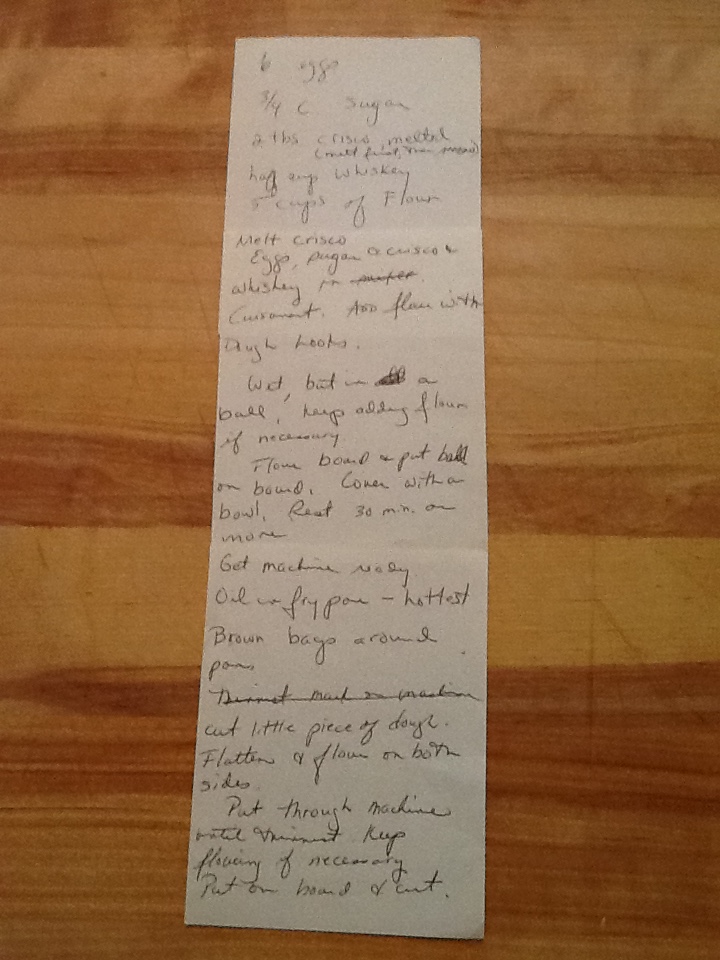 6 eggs
3/4 C sugar
2 tbs crisco, melted
(melt first, then measure)
half cup Whiskey
5 cups of Flour
Melt crisco
Eggs, sugar & crisco &
whiskey in
Cuisanart. Add flour with
Dough hooks.
Wet, but in a
ball, keep adding flour
if necessary
Flour board & put ball
on board. Cover with a
bowl. Rest 30 min. or
more
Get machine ready
Oil in fry pan – hottest
Brown bags around
pans
Thinnest mark on machine
cut little piece of dough.
Flatten & flour on both
sides.
Put through machine
until thinnest Keep
flouring if necessary
Put on board & cut.